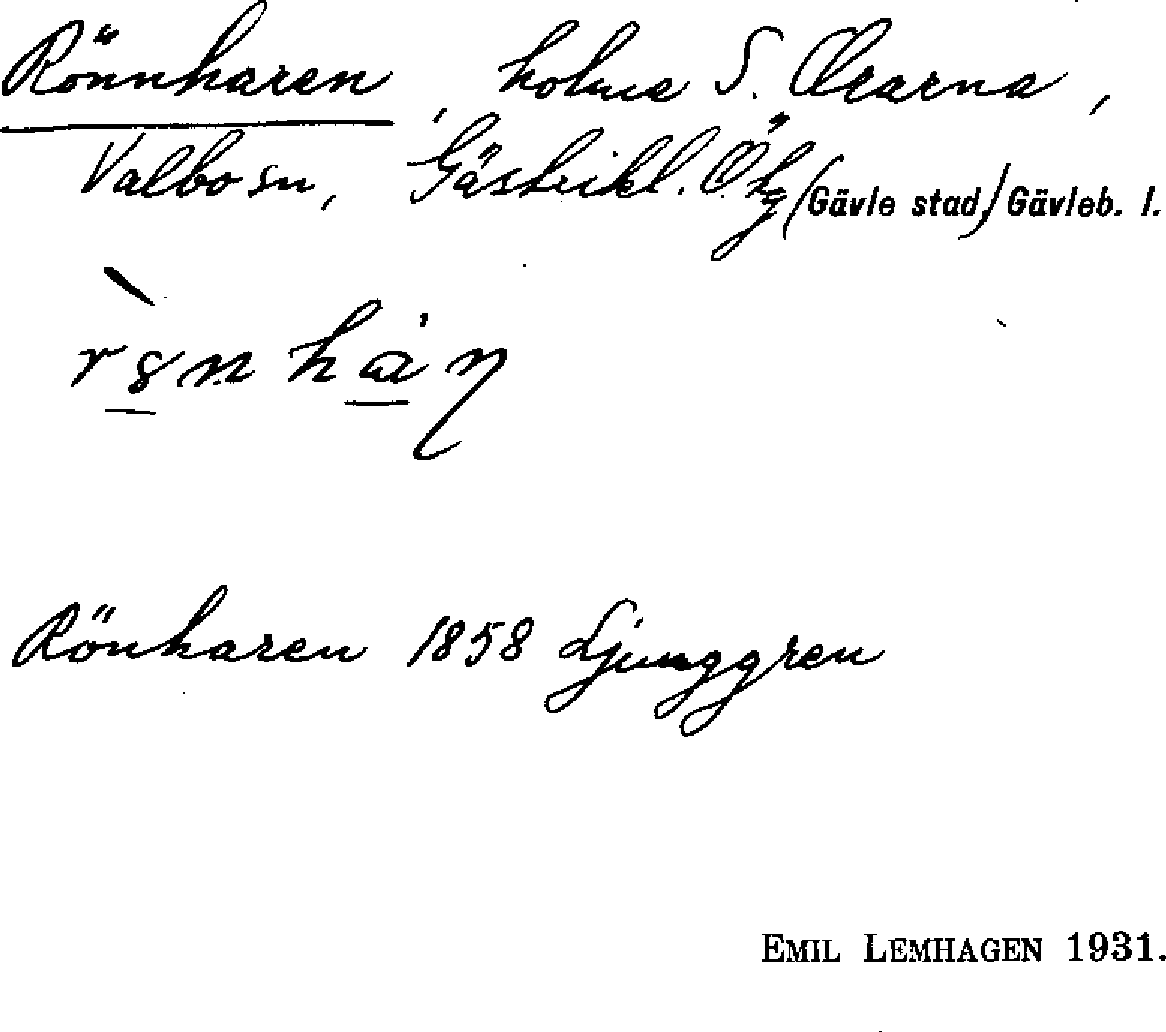 Rönnharen, holme S. Ölarna,
Valbo sn, Gästrikl. Ö. hg (Gävle stad) Gävleb. l.
Rönharen 1858 Ljunggren
EMIL LEMHAGEN 1931.